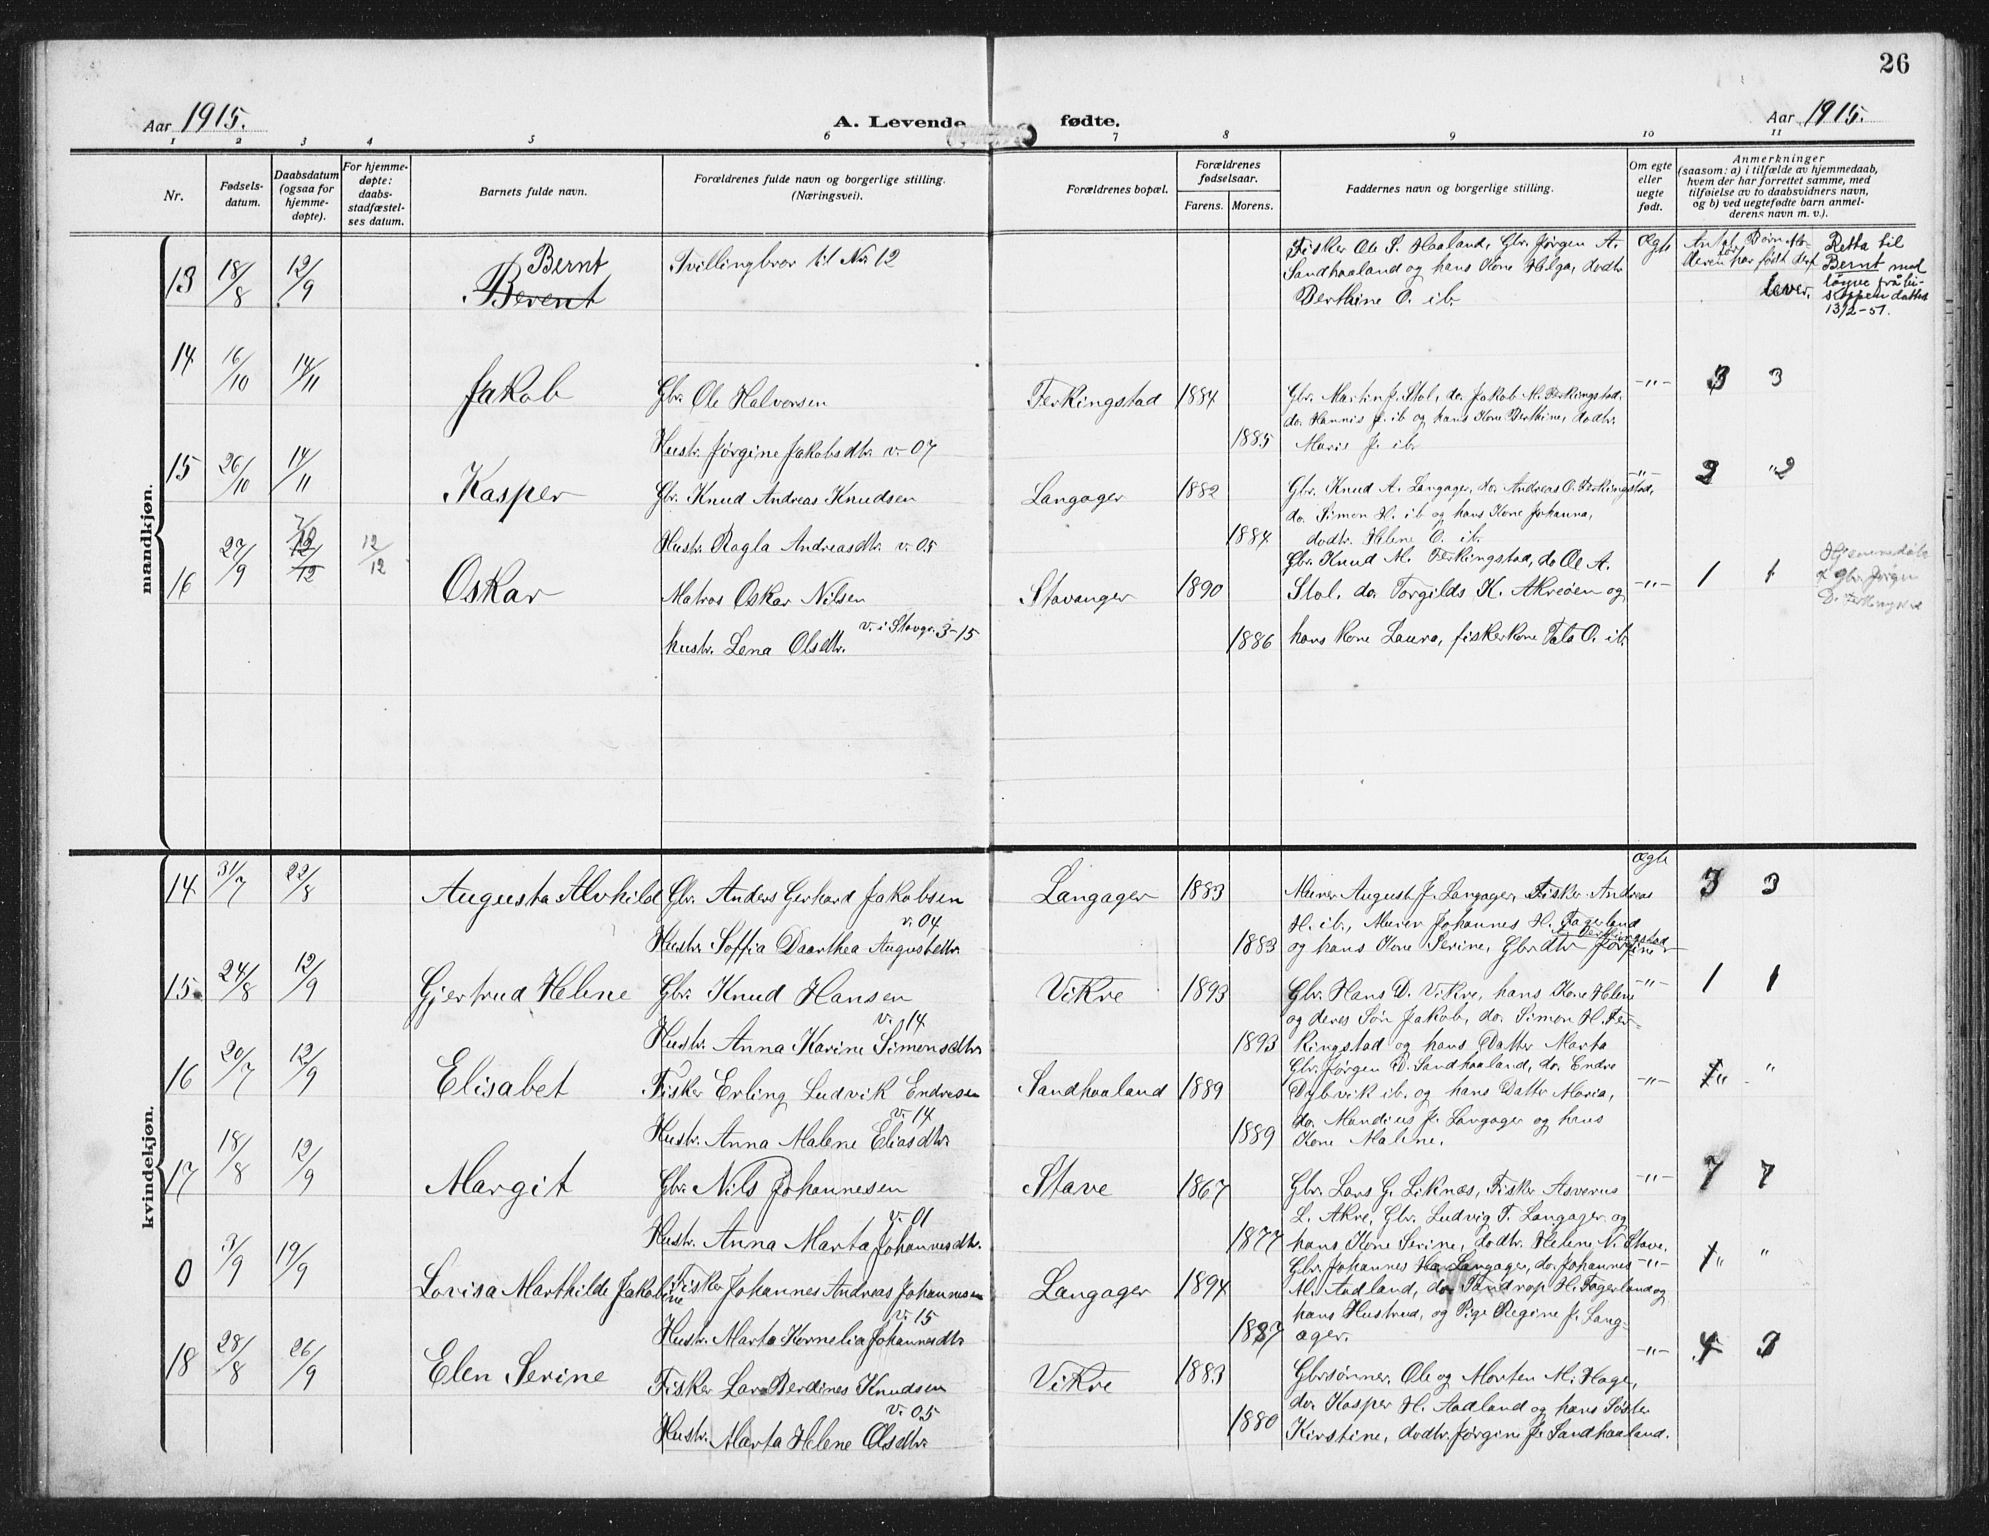 26
Aar 1915.
A. Levende fødte.
Aar 1915.
1 2 3 4 5 6 7 8 9 10 11
Nr.
Fødsels-
datum.
Daabsdatum
(ogsaa for
hjemme-
døpte).
For hjemme-
døpte:
daabs-
stadfæstel-
ses datum.
Barnets fulde navn.
Forældrenes fulde navn og borgerlige stilling.
(Næringsvei).
Forældrenes bopæl.
Forældrenes
fødselsaar.
Farens. Morens.
Faddernes navn og borgerlige stilling.
Om egte
eller
uegte
født.
Anmerkninger
(saasom: a) i tilfælde av hjemmedaab,
hvem der har forrettet samme, med
tilføielse av to daabsvidners navn,
og b) ved uegtefødte barn anmel-
derens navn m. v.).
mandkjøn.
13 18/8 12/9
Bernt
Berent
Tvillingbror til Nr 12
Fisker Ole S. Haaland, Gbr. Jørgen A.
Sandhaaland og hans Kone Helga, dodtr
Berthine O. ib.
Ægte
lever.
Retta til
Bernt med
løyve frå bi-
skoppen datert
13/2-51.
14 16/10 14/11
Jakob
Gbr. Ole Halvorsen
Hustr. Jørgine Jakobsdtr. v. 07
Ferkingstad 1884
1885
Gbr. Martin J. Stol, do. Jakob M. Ferkingstad,
do. Hannis J. ib og hans Kone Berthine, dodtr.
Maris J. ib.
-"- 3 3
15 26/10 14/11
Kasper
Gbr. Knud Andreas Knudsen
Hustr. Ragla Andreasdtr. v. 05
Langager 1882
1884
Gbr. Knud A. Langager, do. Andreas O. Ferkingstad,
do. Simon H. ib og hans Kone Johanna,
dodtr. Helene O. ib.
-"- 2 "2
16 27/9 12/12 12/12
Oskar
Matros Oskar Nilsen
v. i Stavgr. 3-15
hustr. Lena Olsdtr.
Stavanger 1890
1886
Gbr. Knud M. Ferkingstad, do Ole A.
Stol, do. Torgilds K. Akreøen og
hans Kone Laura, fiskerkone Tala O. ib.
-"- 1 1
kvindekjøn.
14 31/7 22/8
Augusta Alvhild
Gbr. Anders Gerhard Jakobsen
v. 04
Hustr. Soffia Daarthea Augustdtr.
Langager 1883
1883
Murer August J. Langager, Fisker Andreas
H. ib., Murer Johannes H. Fagerland
og hans Kone Serine, Gbrdtr Jørgine
Ferkingstad
Ægte 3 3
15. 24/8 12/9
Gjertrud Helene
Gbr. Knud Hansen
v. 14
Hustr. Anna Karine Simonsdtr.
Vikre 1893
1893
Gbr. Hans D. Vikre, hans Kone Helene
og deres Søn Jakob, do. Simon H. Fer-
kingstad og hans Datter Marta
-"- 1 1
16 20/7 12/9
Elisabet
Fisker Erling Ludvik Endresen
v. 14
Hustr. Anna Malene Eliasdtr.
Sandhaaland 1889
1889
Gbr. Jørgen D. Sandhaaland, do. Endre
Dybvik ib. og hans Dattr Maria,
do. Mandius J. Langager og hans
Kone Malene.
-"- 1" "
17 18/8 12/9
Margit
Gbr. Nils Johannesen
v. 01
Hustr. Anna Marta Johannesdtr.
Stave 1867
1877
Gbr. Lars G. Liknæs, Fisker Asverus
L. Akre, Gbr. Ludvig T. Langager og
hans Kone Serine, dodtr. Helene N. Stave.
-"- 7 7
0 3/9 19/9
Lovisa Marthilde Jakobine
Fisker Johannes Andreas Johannesen
v. 15
Hustr. Marta Kornelia Johannesdtr.
Langager 1894
1887
Gbr. Johannes H. Langager, do. Johannes
M. Aadland, do. Tandrop H. Fagerland og
hans Hustrud, og Pige Regine J. Lang-
ager.
-"- 1" "
18 28/8 26/9
Elen Serine
Fisker Lars Berdines Knudsen
v. 05
Hustr. Marta Helene Olsdtr.
Vikre 1883
1880
Gbrsønner. Ole og Morten M. Hage,
do. Kasper H. Aadland og hans Søster
Kirstine, dodtr. Jørgine J. Sandhaaland.
-"- 4 3